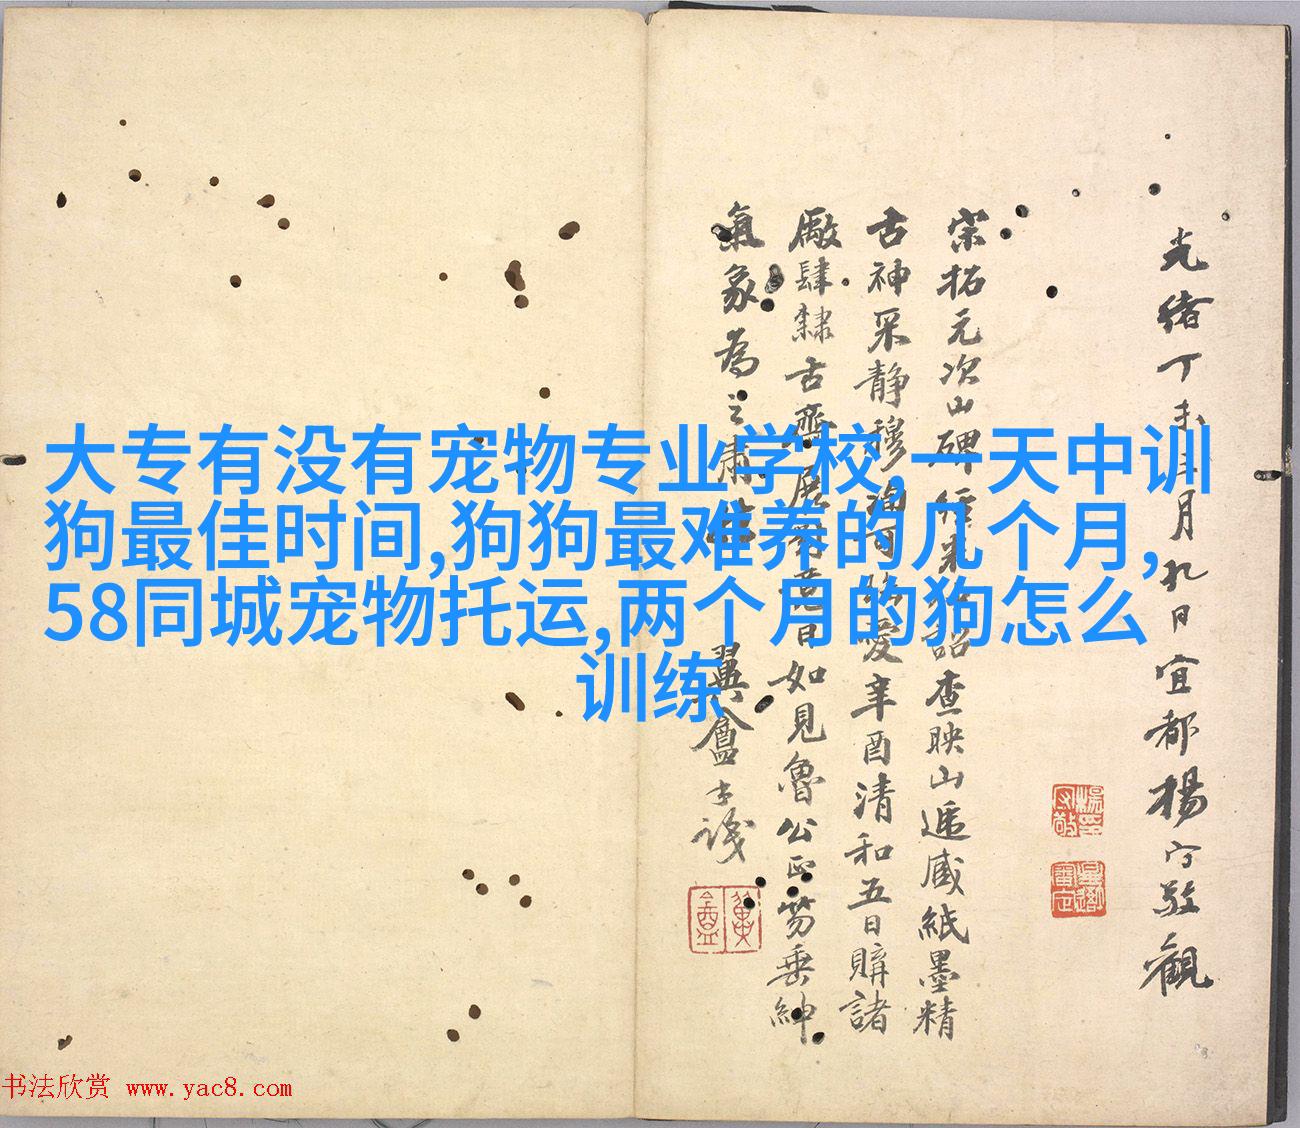 大专有没有宠物专业学校,一天中训
狗最佳时间,狗狗最难养的几个月,
58同城宠物托运,两个月的狗怎么
训练
光緒丁未三月九日宜都楊守敬觀
宋拓元次山碑經朱詔查映山遞臧紙墨精
古神采静穆可愛辛酉清和五日購諸
廠肆隸古齋展竟日如見魯公正笏垂紳
氣象為之肅
翼盦
識
书法欣赏 www.yac8.com